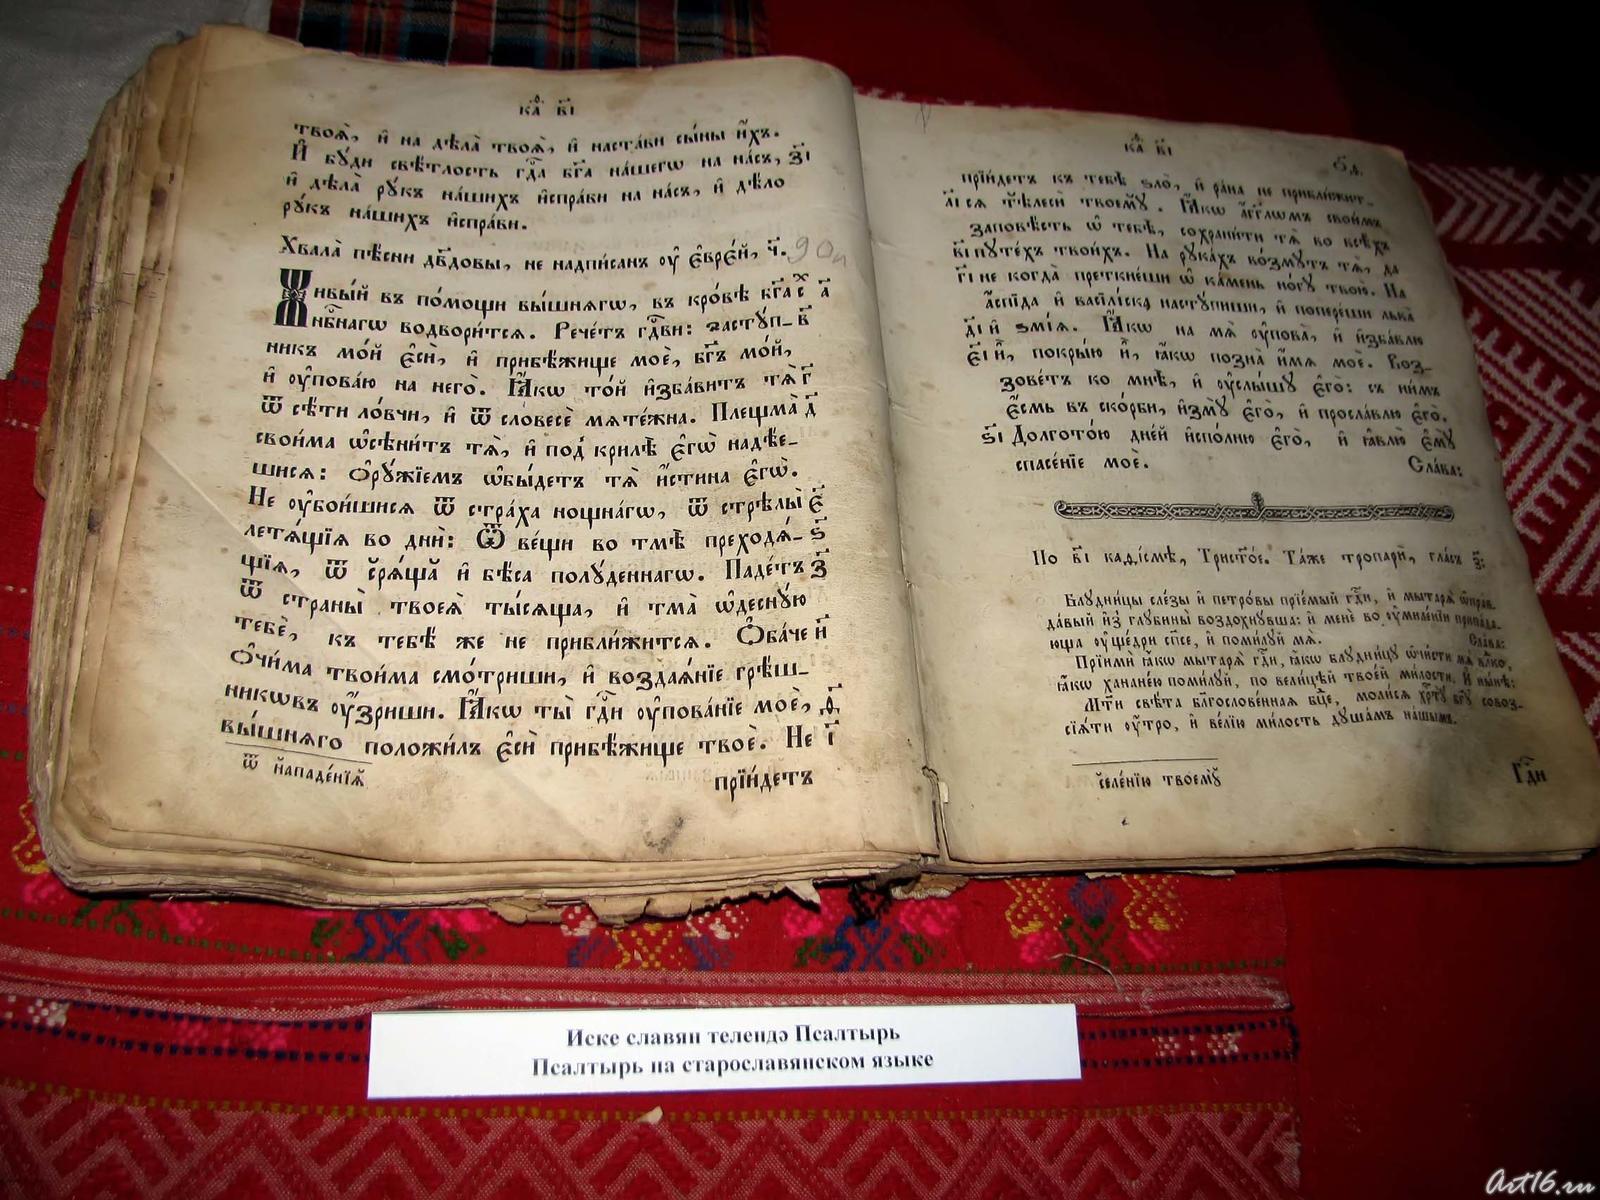 каѳ в҃і
твоѧ̑, и҆ на дѣла̀ твоѧ̑, и҆ наста́ви сы́ны и҆́хъ.
И҆ бꙋ́ди свѣ́тлость гдⷭ҇а бг҃а на́шегѡ на на́съ, з҃і
и҆ дѣла̀ рꙋ́къ на́шихъ и҆спра́ви на на́съ, и҆ дѣ́ло
рꙋ́къ на́шихъ и҆спра́ви.
Хвала̀ пѣ́сни дв҃довы, не надпи́санъ ᲂу҆ є҆вре́й, ч҃. 90
Живы́й въ по́мощи вы́шнѧгѡ, въ кро́вѣ бг҃а с а҃
нбⷭ҇нагѡ водвори́тсѧ. Рече́тъ гдⷭ҇ви: застꙋ́п- в҃
никъ мо́й є҆сѝ, и҆ прибѣ́жище моѐ, бг҃ъ мо́й,
и҆ ᲂу҆пова́ю на него̀. Ꙗ҆́кѡ то́й и҆зба́витъ тѧ̀ г҃
ѿ сѣ́ти ло́вчи, и҆ ѿ словесѐ мѧте́жна. Плещма̀ д҃
свои́ма ѡ҆сѣни́тъ тѧ̀, и҆ под̾ крилѣ̑ є҆гѡ̀ надѣ́е-
шисѧ: Ѻ҆рꙋ́жїемъ ѡ҆бы́детъ тѧ̀ и҆́стина є҆гѡ̀.
Не ᲂу҆бои́шисѧ ѿ стра́ха нощна́гѡ, ѿ стрѣлы̀ є҃
летѧ́щїѧ во днѝ: Ѿ ве́щи во тмѣ̀ преходѧ́- ѕ҃
щїѧ, ѿ срѧ́ща и҆ бѣ́са полꙋ́деннагѡ. Паде́тъ з҃
ѿ страны̀ твоеѧ̀ ты́сѧща, и҆ тма̀ ѡ҆деснꙋ́ю
тебѐ, къ тебѣ́ же не прибли́житсѧ. Ѻ҆ба́че и҃
ѻ҆чи́ма твои́ма смо́триши, и҆ воздаѧ́нїе грѣ́ш-
никѡвъ ᲂу҆́зриши. Ꙗ҆́кѡ ты̀ гдⷭ҇и ᲂу҆пова́нїе моѐ, ѳ҃
вы́шнѧго положи́лъ є҆сѝ прибѣ́жище твоѐ. Не і҃
ѿ нападе́нїѧ
прїи́детъ
каѳ в҃і
прїи́детъ къ тебѣ̀ ѕло̀, и҆ ра́на не прибли́жит-
а҃і сѧ тѣлесѝ твоемꙋ̀. Ꙗ҆́кѡ а҆́гг҃лѡмъ свои́мъ
заповѣ́сть ѡ҆ тебѣ̀, сохрани́ти тѧ̀ во всѣ́хъ
в҃і пꙋте́хъ твои́хъ. На рꙋка́хъ во́змꙋтъ тѧ̀, да
г҃і не когда̀ преткне́ши ѡ҆ ка́мень но́гꙋ твою̀. На
а҆́спида и҆ васїлі́ска настꙋ́пиши, и҆ попере́ши льва̀
д҃і и҆ ѕмі́ѧ. Ꙗ҆́кѡ на мѧ̀ ᲂу҆пова̀, и҆ и҆зба́влю
є҃і и҆̀, покры́ю и҆̀, ꙗ҆́кѡ позна̀ и҆́мѧ моѐ. Воз-
зове́тъ ко мнѣ̀, и҆ ᲂу҆слы́шꙋ є҆го̀: съ ни́мъ
є҆́смь въ ско́рби, и҆змꙋ̀ є҆го̀, и҆ просла́влю є҆го̀.
ѕ҃і Долгото́ю дне́й и҆спо́лню є҆го̀, и҆ ꙗ҆влю̀ є҆мꙋ̀
спасе́нїе моѐ. Сла́ва:
По в҃і каѳі́смѣ, Трист҃о́е. Та́же тропари̑, гла́съ з҃:
Блꙋдни́цы сле́зы и҆ петро́вы прїе́мый гдⷭ҇и, и҆ мытарѧ̀ ѡ҆прав-
да́вый и҆з̾ глꙋбины̀ воздохнꙋ́вша: и҆ менѐ во ᲂу҆миле́нїи припа́да-
юща ᲂу҆ще́дри сп҃се, и҆ поми́лꙋй мѧ̀. Сла́ва:
Прїимѝ ꙗ҆́кѡ мытарѧ̀ гдⷭ҇и, ꙗ҆́кѡ блꙋдни́цꙋ ѡ҆чи́сти мѧ̀ влⷣко,
ꙗ҆́кѡ ханане́ю поми́лꙋй, по вели́цѣй твое́й ми́лости. И҆ ны́нѣ:
Мт҃и свѣ́та бл҃гослове́ннаѧ бцⷣе, моли́сѧ хрⷭ҇тꙋ̀ бг҃ꙋ совоз-
сїѧ́ти ᲂу҆́тро, и҆ ве́лїю ми́лость дꙋша́мъ на́шымъ.
селе́нїю твоемꙋ̀
Гдⷭ҇и
Иске славян телендә Псалтырь
Псалтырь на старославянском языке
Art16.ru